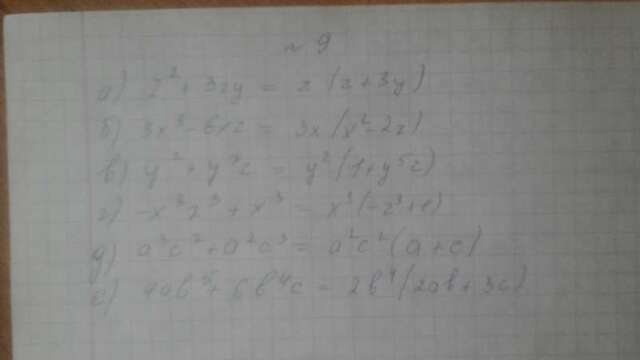 № 9
а) z² + 3zy = z (z + 3y)
б) 3x³ - 6xz = 3x (x² - 2z)
в) y² + y⁷z = y² (1 + y⁵z)
г) -x³z³ + x³ = x³ (-z³ + 1)
д) a³c² + a²c³ = a²c² (a + c)
е) 4ab⁵ + 6b⁴c = 2b⁴ (2ab + 3c)